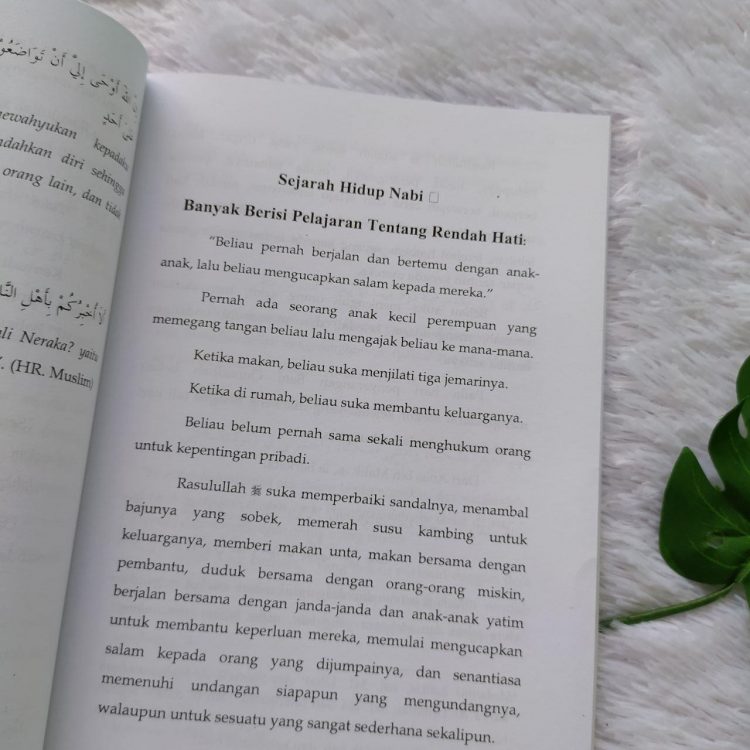 الله أَوْحَى إِلَيَّ أَنْ تَوَاضَعُوا
عَلَى أَحَدٍ
mewahyukan kepadaku
ndahkan diri sehingga
orang lain, dan tidak
أَلَا أُخْبِرُكُمْ بِأَهْلِ النَّا
li Neraka? yaitu
(HR. Muslim)
Sejarah Hidup Nabi □
Banyak Berisi Pelajaran Tentang Rendah Hati:
"Beliau pernah berjalan dan bertemu dengan anak-
anak, lalu beliau mengucapkan salam kepada mereka."
Pernah ada seorang anak kecil perempuan yang
memegang tangan beliau lalu mengajak beliau ke mana-mana.
Ketika makan, beliau suka menjilati tiga jemarinya.
Ketika di rumah, beliau suka membantu keluarganya.
Beliau belum pernah sama sekali menghukum orang
untuk kepentingan pribadi.
Rasulullah ﷺ suka memperbaiki sandalnya, menambal
bajunya yang sobek, memerah susu kambing untuk
keluarganya, memberi makan unta, makan bersama dengan
pembantu, duduk bersama dengan orang-orang miskin,
berjalan bersama dengan janda-janda dan anak-anak yatim
untuk membantu keperluan mereka, memulai mengucapkan
salam kepada orang yang dijumpainya, dan senantiasa
memenuhi undangan siapapun yang mengundangnya,
walaupun untuk sesuatu yang sangat sederhana sekalipun.